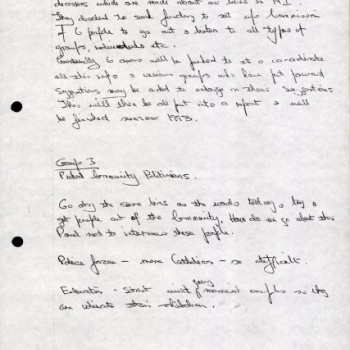 decisions which are made about our lives in N.I.
They decided to seek funding to set up Commission
of 6 people to go out & listen to all types of
groups, individuals etc.
Generally 6 areas will be picked to sit & co-ordinate
all this info & various groups who have put forward
suggestions may be asked to enlarge on these suggestions
This will then be all put into a report & will
be finished summer 1993.
Group 3
Community Politicians.
Go along the same lines as the
get people out of the Community. How do we go about this
Panel not to interview these people.
Police forces – more Catholics – so difficult.
Education - Start with young married couples so they
can educate their children.